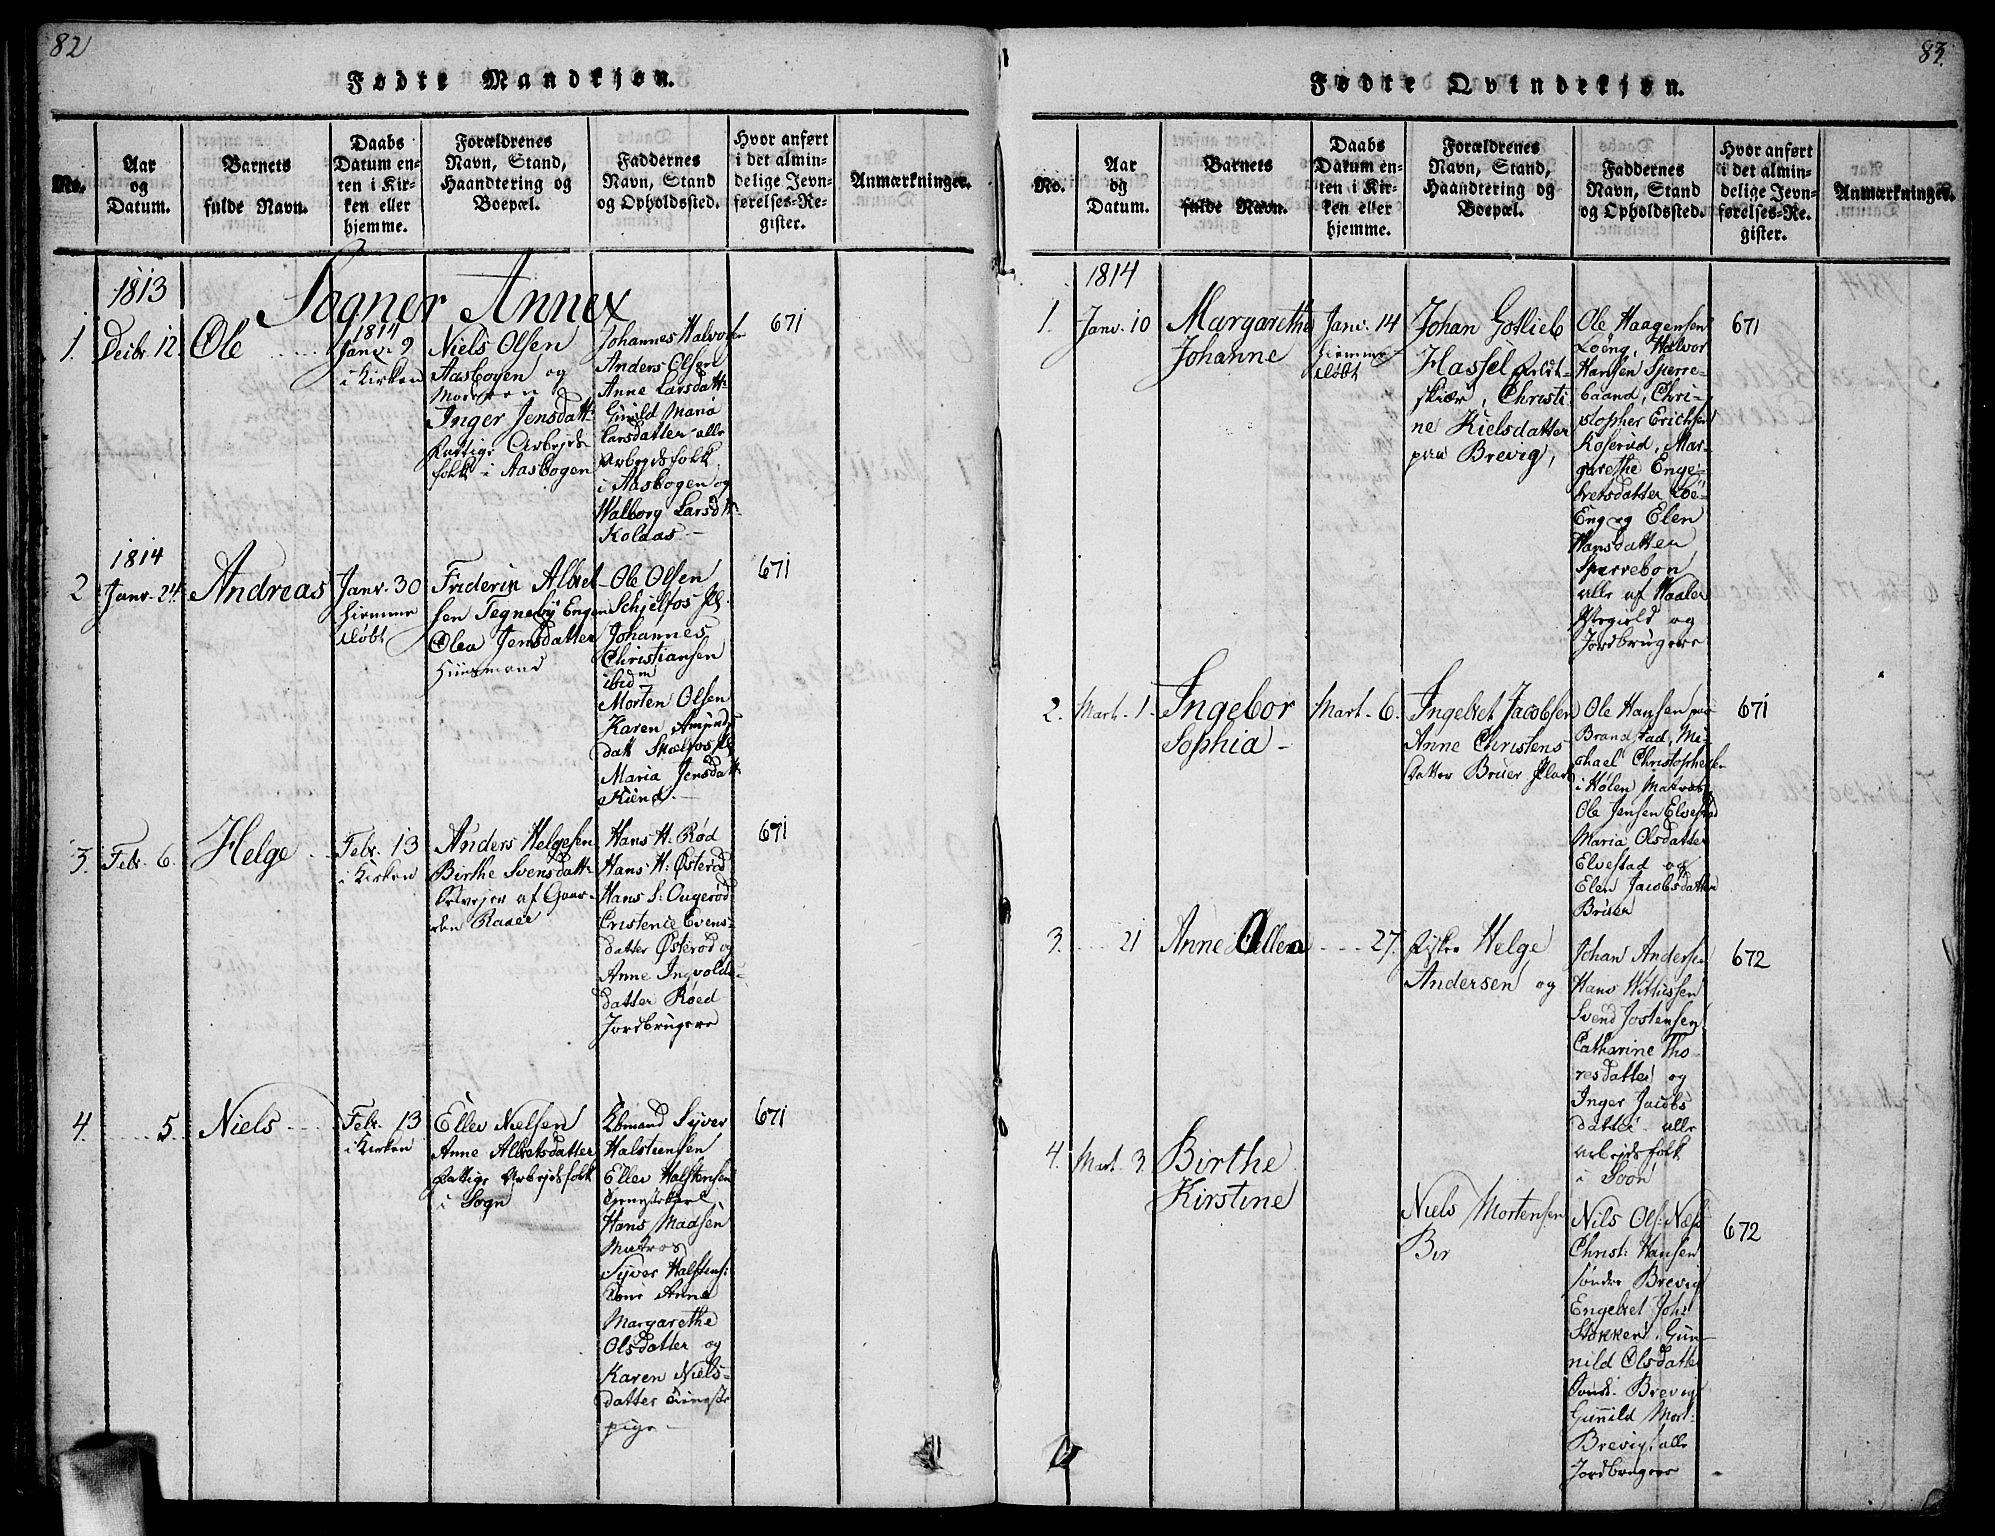 82
Fødte Mandkjøn.
No.
Aar
og
Datum.
Barnets
fulde Navn.
Daabs
Datum en-
ten i Kir-
ken eller
hjemme.
Forældrenes
Navn, Stand,
Haandtering og
Boepæl.
Faddernes
Navn, Stand
og Opholdssted.
Hvor anført
i det almin-
delige Jevn-
førelses-Re-
gister.
Anmærkninger.
Sogner Annex
1813
1. Decbr 12.
Ole
1814
Janv. 9
i Kirken
Niels Olsen
Aasbogen og
Inger Jensdatt:
Fattige Arbejds
folk i Aasbogen
Johannes Halvorsen
Anders Olsen
Anne Larsdatt:
Gunild Maria
Larsdatter alle
Arbejdsfolk
i Aasbogen og
Walborg Larsdtt:
Kolaas
671
1814
2 Janv. 24.
Andreas
Janv. 30
hiemme
døbt
Friderik Albret-
sen Tegneby Engen
Olea Jensdatter
Huusmand
Ole Olsen
Schjelfos Pl.
Johannes
Christiansen
ibidm
Morten Olsen
Karen Amund
datt Skielfos Pl
Maria Jensdatt
671
3. Febr. 6.
Helge
Febr. 13
i Kirken
Anders Helgesen
Birthe Svensdatt:
af Gaar-
den Raaer
Hans H. Rød
Hans H: Østerød
Hans S: Ougerød
Cristence Evens-
datter Østerød og
Anne Ingvolds-
datter Røed
Jordbrugere
671
4. 5.
Niels
Febr. 13
i Kirken
Eller Nielsen
Anne Albretsdatter
Fattige Arbejdsfolk
i Sogn
Kbmand Syver
Halstensen
Eller Halstensen
Tienestekarl
Hans Madsen
Matros
Syver Halstens:
Kone Anne
Margarethe
Olsdatter og
Karen Niels-
datter tieneste
pige
671
83.
Fødte Qvindekjøn.
No.
Aar
og
Datum.
Barnets
fulde Navn.
Daabs
Datum en-
ten i Kir-
ken eller
hjemme.
Forældrenes
Navn, Stand,
Haandtering og
Boepæl.
Faddernes
Navn, Stand
og Opholdssted.
Hvor anført
i det almin-
delige Jevn-
førelses-Re-
gister.
Anmærkninger.
1814
1. Janv. 10
Margarethe
Johanne
Janv. 14
hiemme
døbt
Johan Gotlieb
Hassel Feldt-
skiær, Christi
ne Kielsdatter
paa Brevig,
Ole Haagensen
Løeng, Halvor
Hansen Sperre-
baand, Chri-
stopher Erichsen
Koserud, Mar-
garethe Enge-
bretsdatter Løe-
Eng og Elen
Hansdatter
Sperrebon
alle af Waaler
Præstegield og
Jordbrugere
671
2. Mart. 1.
Ingebor
Sophia
Mart. 6.
Ingebret Jacobsen
Anne Christens
datter Bruer Plads
Ole Hansen paa
Brandstad, Mi-
chael Christophersen
i Hølen Matros
Ole Jensen Elvestad
Maria Olsdatter
Elvestad og
Elen Jacobsdatter
Bruer
671
3. 21
Anne Ellena
27.
Fisker Helge
Andersen og
Johan Andersen
Hans
Svend Jostensen
Catharine Tho-
resdatter og
Inger Jacobs
datter alle
arbejdsfolk
i Soon
672
4. Mart. 3.
Birthe
Kirstine
Niels Mortensen
Bir
Nils Ols: Næs
Christ: Hansen
søndre Brevig
Engelbret Joh:
Stokker, Gun-
nild Olsdatter
Sønd: Brevig
Gunild Mort:
Brevig, alle
Jordbrugere
672